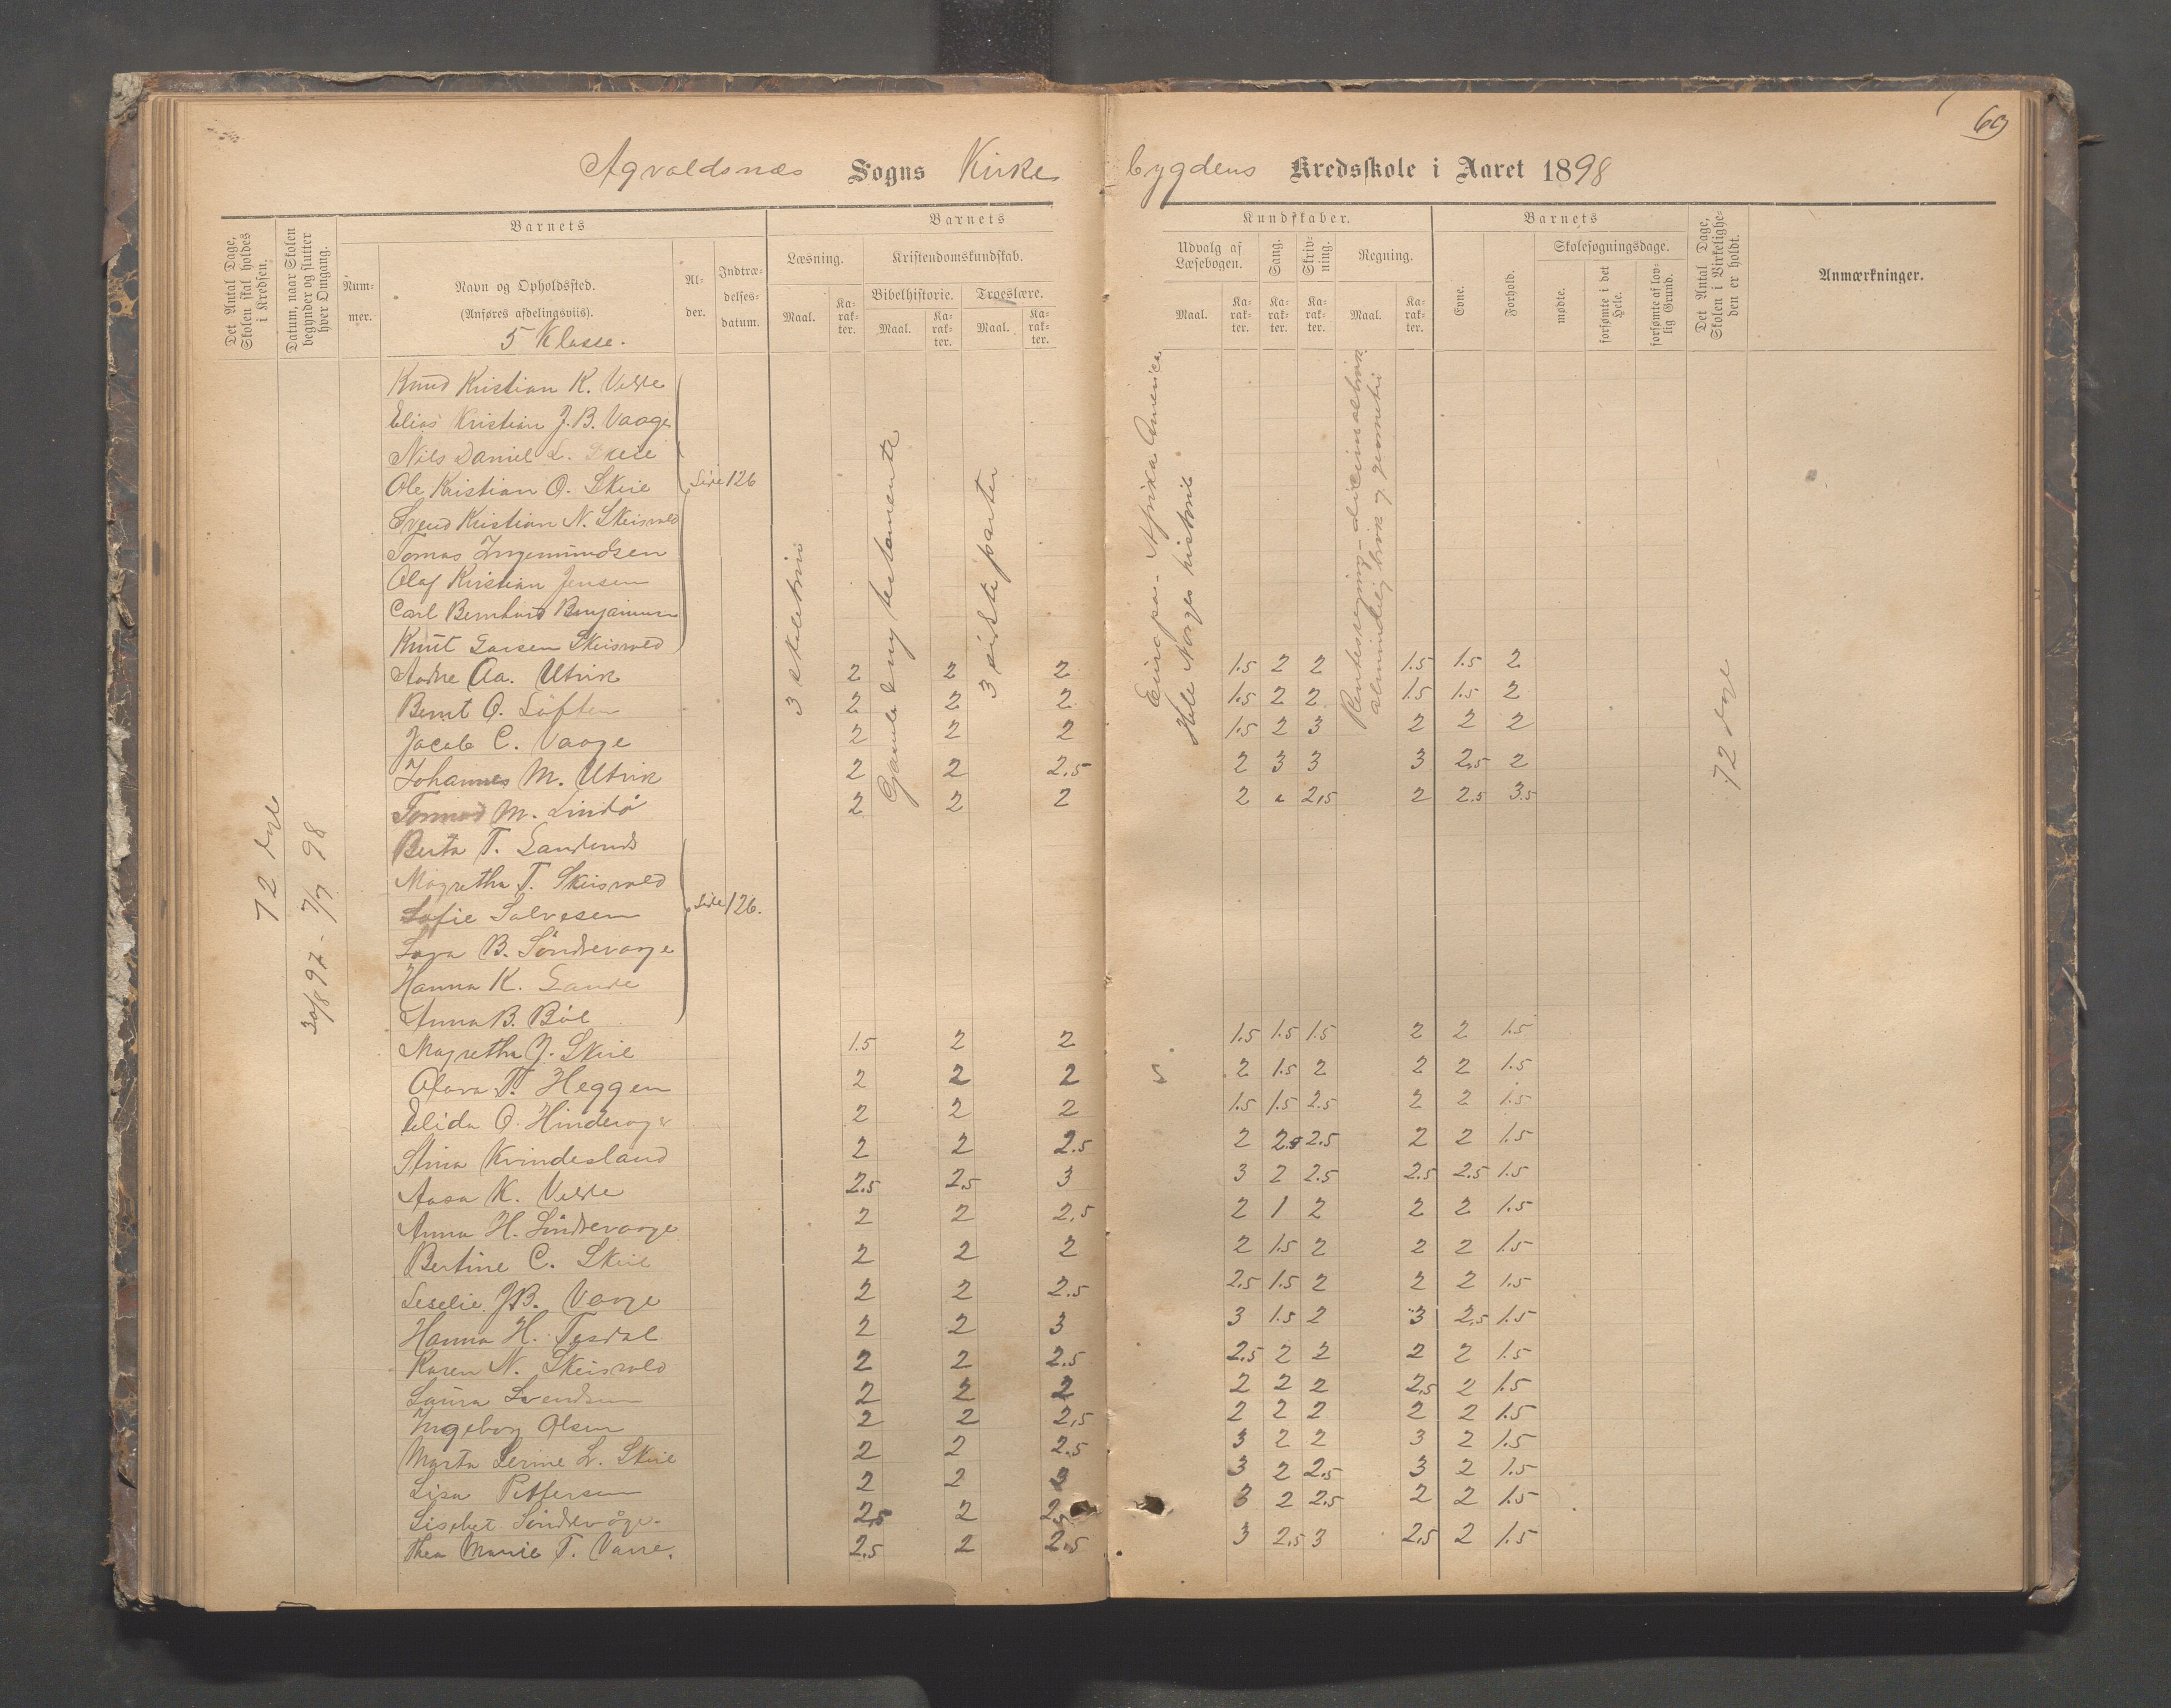 69
Agvaldsnæs Sogns Kirke bygdens Kredsskole i Aaret 1898
Det Antal Dage, Skolen skal holdes i Kredsen.
Datum, naar Skolen begynder og slutter hver Omgang.
Barnets
Num-mer.
Navn og Opholdssted.
(Anføres afdelingsviis).
5 Klasse.
Al-der.
Indtræ-delses-datum.
Barnets
Læsning.
Maal.
Ka-rak-ter.
Kristendomskundskab.
Bibelhistorie.
Maal.
Ka-rak-ter.
Troeslære.
Maal.
Ka-rak-ter.
Kundskaber.
Udvalg af Læsebogen.
Maal.
Ka-rak-ter.
Sang.
Ka-rak-ter.
Skriv-ning.
Ka-rak-ter.
Regning.
Maal.
Ka-rak-ter.
Barnets
Evne.
Forhold.
Skolesøgningsdage.
mødte.
forsømte i det Hele.
forsømte af lov-lig Grund.
Det Antal Dage, Skolen i Virkelighe-den er holdt.
Anmærkninger.
72 dage
30/8 97 - 7/7 98
3 skoletrin
Gamle & ny testamente
3 første parter
Europa - Afrika Amerika.
Hele Norges historie
Renteregning - decimalbrøk
almindelig brøk og geometri
72 dage
Knud Kristian K. Velde
Elias Kristian J. B. Vaage
Nils Daniel L. Skeie
Ole Kristian O. Skeie Side 126
Svend Kristian N. Skeisvold
Tomas Ingemundsen
Olaf Kristian Jensen
Carl Bernhard Benjaminsen
Knut Larsen Skeisvold
Andre Aa. Utvik 2 2 2 1.5 2 2 1.5 1.5 2
Bernt O. Loften 2 2 2 1.5 2 2 1.5 1.5 2
Jacob C. Vaage 2 2 2 1.5 2 3 2 2 2
Johannes M. Utvik 2 2 2.5 2 3 3 3 2.5 2
Tormod M. Lindø 2 2 2 2 2 2.5 2 2.5 3.5
Berta T. Sandlund
Magretha T. Skeisvold
Sofie Salvesen Side 126.
Sara B. Søndrevaage
Hanna K. Sande
Anna B. Bøe
Magretha J. Skeie 1.5 2 2 1.5 1.5 1.5 2 2 1.5
Olava T. Heggen 2 2 2 2 1.5 2 2 2 1.5
Elida O. Hindevage 2 2 2 1.5 1.5 2.5 2 2 1.5
Stina Kvindesland 2 2 2.5 2 2.5 2.5 2 2 1.5
Aasa K. Velde 2.5 2.5 3 3 2 2.5 2.5 2.5 1.5
Anna H. Søndrevaage 2 2 2.5 2 1 2 2 2 1.5
Bertine C. Skeie 2 2 2 2 1.5 2 2 2 1.5
Leselie J.B. Vaage 2 2 2.5 2.5 1.5 2 2 2 1.5
Hanna H. Tesdal 2 2 3 3 1.5 2 3 2.5 1.5
Karen N. Skeisvold 2 2 2.5 2.5 2 2 2 2 1.5
Laura Svendsen 2 2 2 2 2 2 2.5 2 1.5
Ingeborg Olsen 2 2 2.5 2 2 2 2 2 1.5
Marta Serine L. Skeie 2 2 2.5 3 2 2 3 2 1.5
Lisa Pettersen 2 2 3 3 2 2.5 3 2 1.5
Lisebet Søndrevåge. 2.5 2 2.5 3 2 2.5 2 2 1.5
Thea Marie T. Varre. 2.5 2 2.5 3 2.5 3 2.5 2 1.5